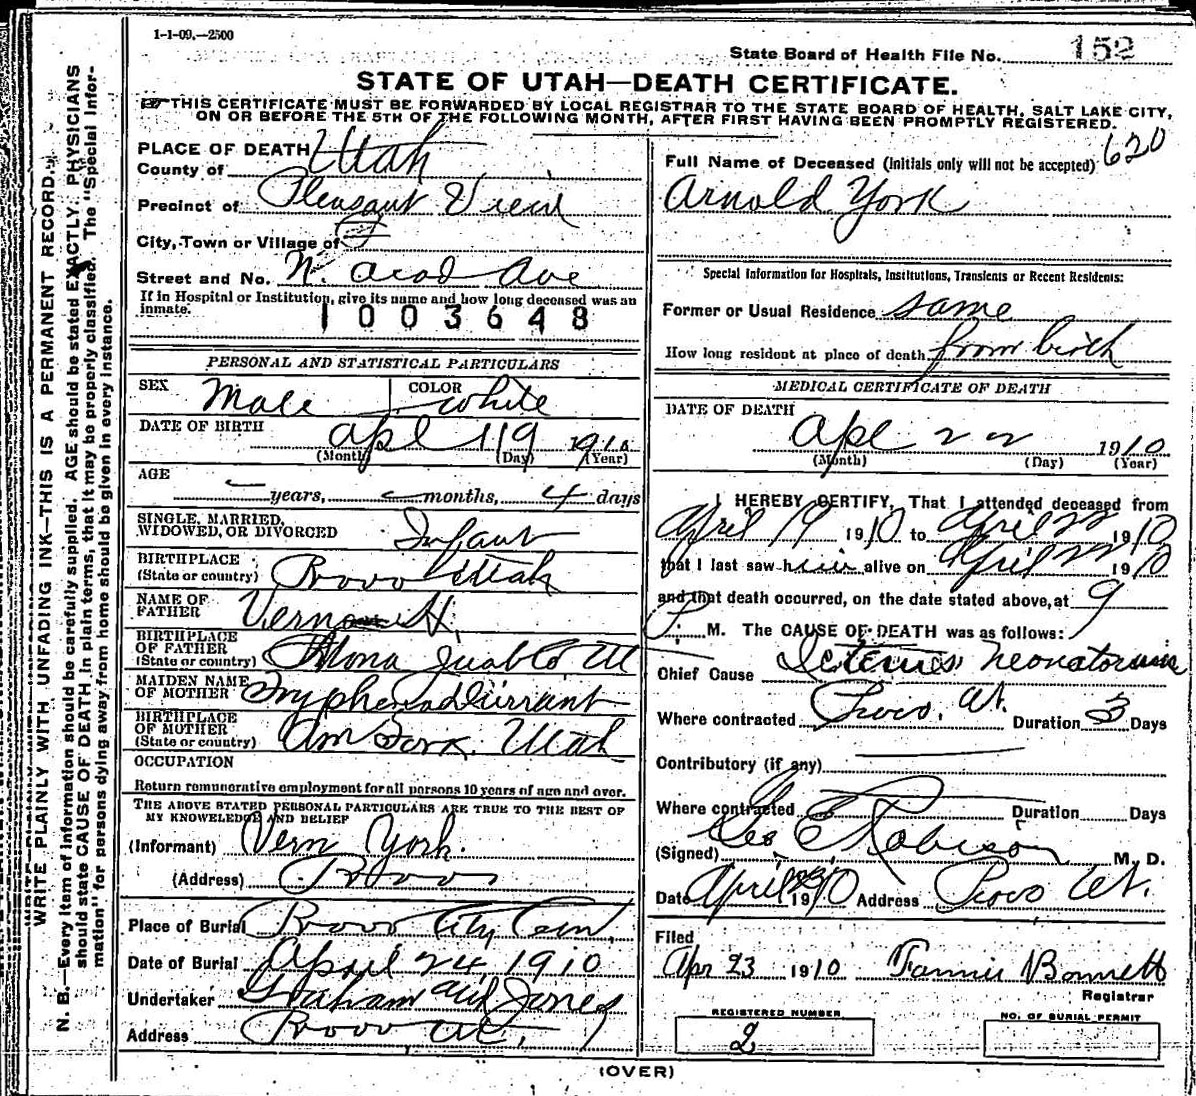 1-1-09.—2500
State Board of Health File No. 152
STATE OF UTAH—DEATH CERTIFICATE.
THIS CERTIFICATE MUST BE FORWARDED BY LOCAL REGISTRAR TO THE STATE BOARD OF HEALTH, SALT LAKE CITY,
ON OR BEFORE THE 5TH OF THE FOLLOWING MONTH, AFTER FIRST HAVING BEEN PROMPTLY REGISTERED.
WRITE PLAINLY WITH UNFADING INK—THIS IS A PERMANENT RECORD.
N. B.—Every item of information should be carefully supplied. AGE should be stated EXACTLY. PHYSICIANS
should state CAUSE OF DEATH in plain terms, that it may be properly classified. The "Special Infor-
mation" for persons dying away from home should be given in every instance.
PLACE OF DEATH
County of Utah
Precinct of Pleasant View
City, Town or Village of
Street and No. N. Acad Ave
If in Hospital or Institution, give its name and how long deceased was an
inmate.
1003648
PERSONAL AND STATISTICAL PARTICULARS
SEX Male COLOR White
DATE OF BIRTH Apl 19 1910
(Month) (Day) (Year)
AGE
— years, — months, 4 days
SINGLE, MARRIED,
WIDOWED, OR DIVORCED Infant
BIRTHPLACE
(State or country) Provo Utah
NAME OF
FATHER Vern H.
BIRTHPLACE
OF FATHER
(State or country) Mona Juab Co Ut
MAIDEN NAME
OF MOTHER Tryphena Durrant
BIRTHPLACE
OF MOTHER
(State or country) Am Fork. Utah
OCCUPATION
Return remunerative employment for all persons 10 years of age and over.
THE ABOVE STATED PERSONAL PARTICULARS ARE TRUE TO THE BEST OF
MY KNOWLEDGE AND BELIEF
(Informant) Vern York.
(Address) Provo
Place of Burial Provo City Cem.
Date of Burial April 24, 1910
Undertaker Graham and Jones
Address Provo Ut.
620
Full Name of Deceased (Initials only will not be accepted)
Arnold York
Special Information for Hospitals, Institutions, Transients or Recent Residents:
Former or Usual Residence same
How long resident at place of death from birth
MEDICAL CERTIFICATE OF DEATH
DATE OF DEATH
Apl 22 1910
(Month) (Day) (Year)
I HEREBY CERTIFY, That I attended deceased from
April 19 1910 to April 22 1910
that I last saw him alive on April 22 1910
and that death occurred, on the date stated above, at 9
P. M. The CAUSE OF DEATH was as follows:
Chief Cause Icterus Neonatorum
Where contracted Provo. Ut. Duration 3 Days
Contributory (if any)
Where contracted Duration Days
(Signed) Geo E Robison M. D.
Date April 1910 Address Provo Ut.
Filed
Apr 23 1910 Fannie Bonnett
Registrar
REGISTERED NUMBER
2
NO. OF BURIAL PERMIT
(OVER)